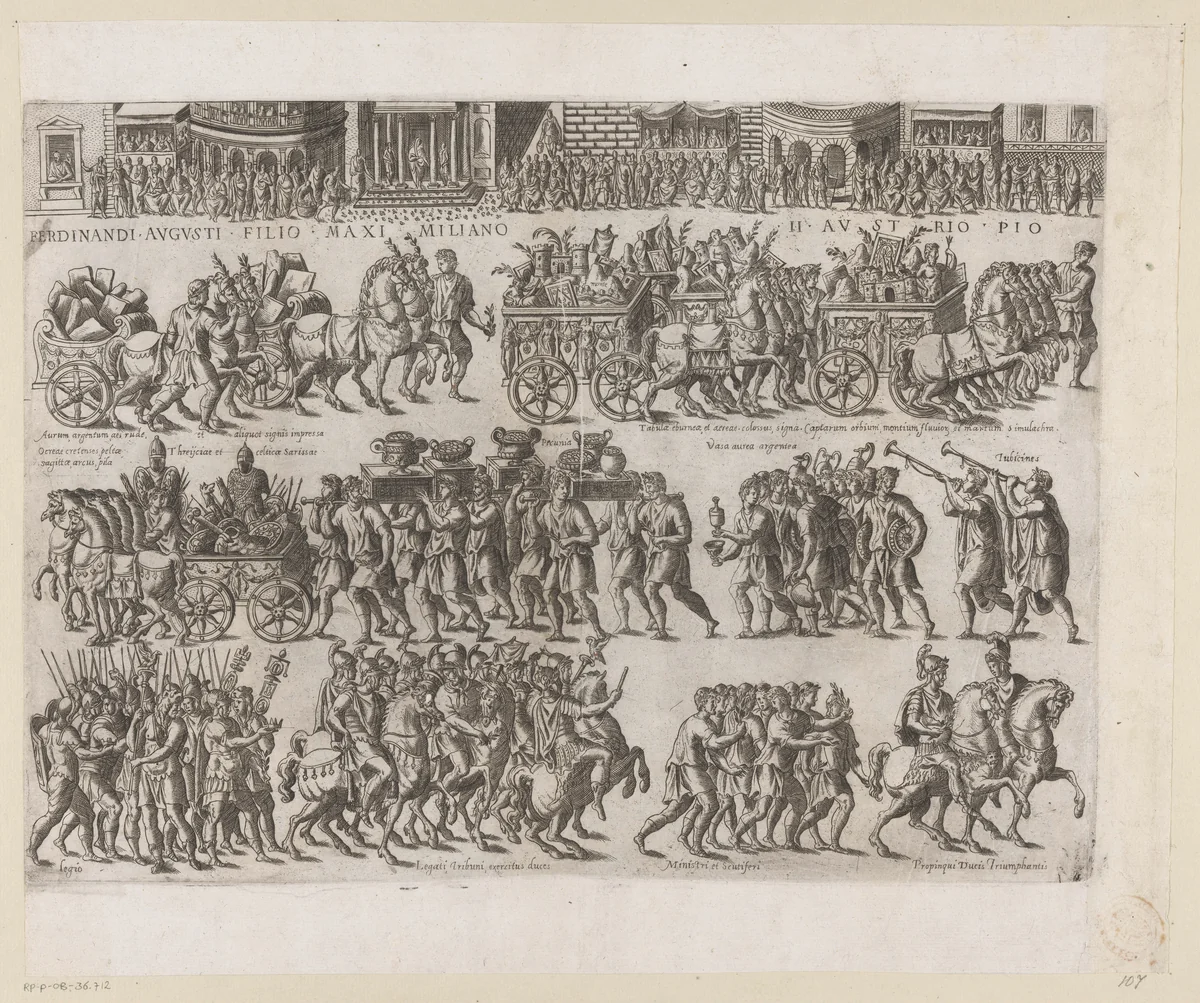 FERDINANDI · AVGVSTI · FILIO · MAXI MILIANO II · AV ST RIO · PIO
Aurum argentum aes rude, et aliquot signis impressa
Tabulæ eburneæ, et aereae · colossus, signa · Captarum orbium, montium, fluvior, et martum Simulachra.
Ocreæ cretenses peltæ Threijciae et celticæ Sarissae
sagittæ arcus, pila
Pecunia
Vasa aurea argentea
Tubicines
legio
Legati Tribuni, exercitus duces
Ministri et Scutiferi
Propinqui Ducis Triumphantis
RP-P-OB-36.712
107